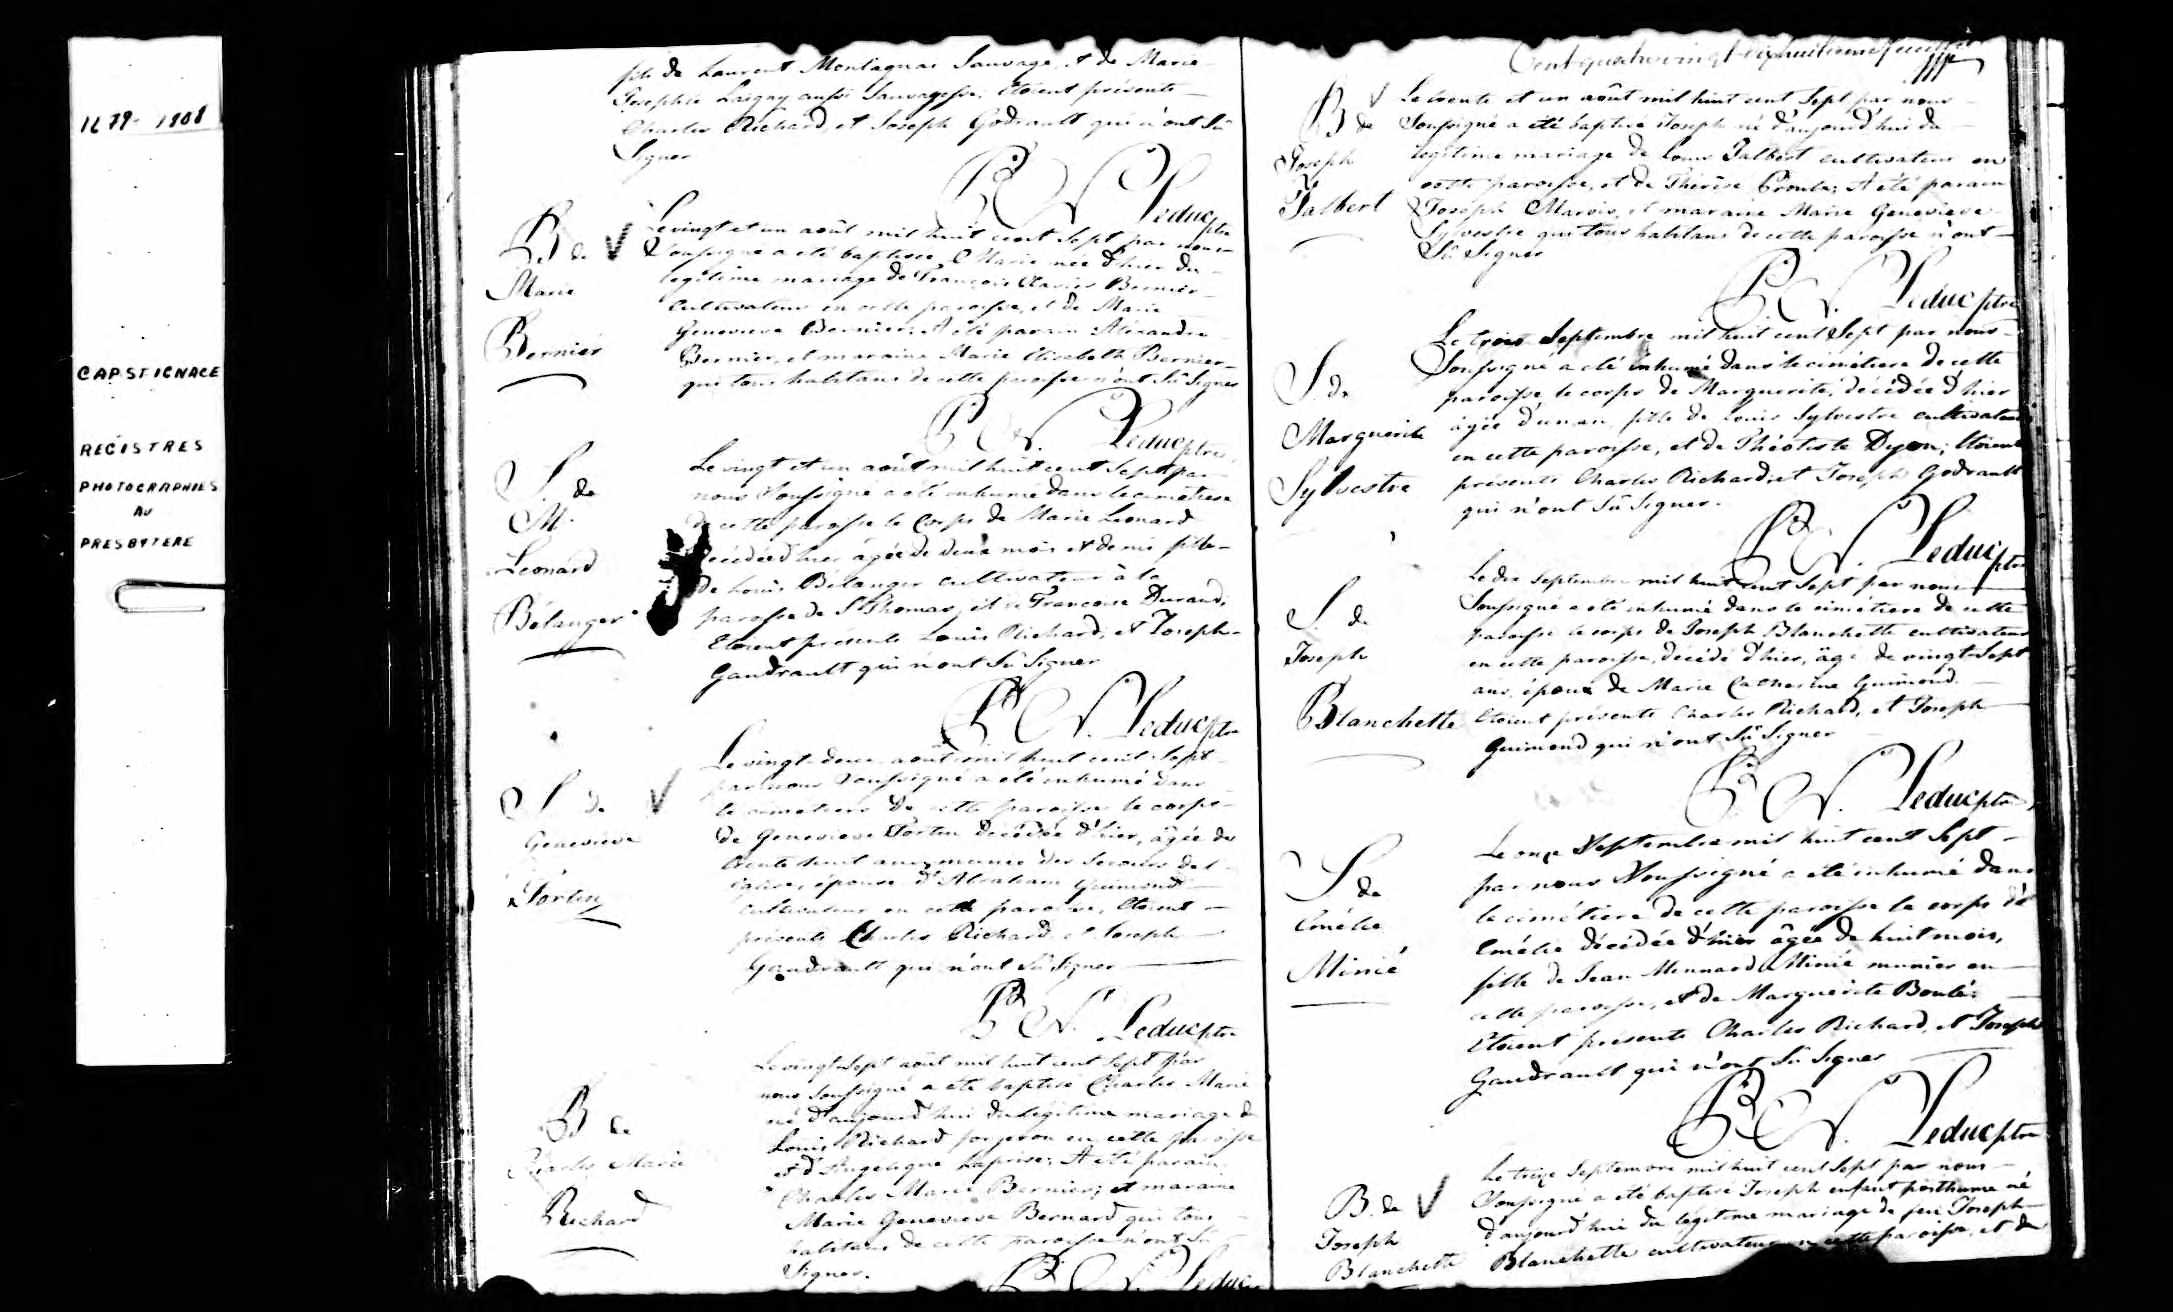 1679-1908
CAP ST IGNACE
REGISTRES
PHOTOGRAPHIES
AU
PRESBYTERE
fils de Laurent Montagnai Sauvage, et de Marie
Josephte aussi Sauvagesse; Etoient présents
Charles Richard et Joseph Godrault qui n'ont Sû
Signer
Leduc ptre
B de
Marie
Bernier
Le vingt et un août mil huit cent Sept par nous
Soussigné a été baptisée Marie née d'hier du
légitime mariage de François Xavier Bernier
Cultivateur en cette paroisse, et de Marie
Genevieve Bernier; A été parain Alexandre
Bernier, et maraine Marie Elisabeth Bernier
qui tous habitans de cette paroisse n'ont Sû Signer
Leduc ptre
S. de
M.
Leonard
Bélanger
Le vingt et un août mil huit cent Sept par
nous Soussigné a été inhumé dans le cimetiere
de cette paroisse le Corps de Marie Leonard
décédée d'hier âgée de deux mois et demi fille
de Louis Bélanger cultivateur à la
paroisse de St Thomas, et de Françoise Durand,
Etoient présents Louis Richard, et Joseph
Gaudrault qui n'ont Sû Signer
Leduc ptre
S de
Genevieve
Fortin
Le vingt deux août mil huit cent Sept
par nous Soussigné a été inhumé dans
le cimetiere de cette paroisse le corps
de Genevieve Fortin décédée d'hier, âgée de
trente huit ans munie des Secours de l'
église, épouse d'Abraham Guimond
cultivateur en cette paroisse, Etoient
présents Charles Richard et Joseph
Gaudrault qui n'ont Sû Signer
Leduc ptre
B de
Charles Marie
Richard
Le vingt Sept août mil huit cent Sept par
nous Soussigné a été baptisé Charles Marie
né d'aujourd'hui du légitime mariage de
Louis Richard forgeron en cette paroisse
et d'Angelique Laprise; A été parain
Charles Marie Bernier; et maraine
Marie Genevieve Bernard qui tous
habitans de cette paroisse n'ont Sû
Signer.
Leduc
Cent quatre vingt dix huitieme feuillet
B de
Joseph
Talbert
Le trente et un août mil huit cent Sept par nous
Soussigné a été baptisé Joseph né d'aujourd'hui du
légitime mariage de Louis Talbert cultivateur en
cette paroisse, et de Thérèse Proulx; A été parain
Joseph Marois, et maraine Marie Genevieve
Sylvestre qui tous habitans de cette paroisse n'ont
Sû Signer
Leduc ptre
S. de
Marguerite
Sylvestre
Le trois Septembre mil huit cent Sept par nous
Soussigné a été inhumé dans le cimétiere de cette
paroisse, le corps de Marguerite, décédée d'hier
âgée d'un an, fille de Louis Sylvestre cultivateur
en cette paroisse, et de Théotiste Dyon; Etoient
présents Charles Richard, et Joseph Godrault
qui n'ont Sû Signer.
Leduc ptre
S de
Joseph
Blanchette
Le dix Septembre mil huit cent Sept par nous
Soussigné a été inhumé dans le cimétiere de cette
paroisse le corps de Joseph Blanchette cultivateur
en cette paroisse, décédé d'hier, âgé de vingt Sept
ans, époux de Marie Catherine Guimond.
Etoient présents Charles Richard, et Joseph
Guimond qui n'ont Sû Signer
Leduc ptre
S de
Emélie
Minié
Le onze Septembre mil huit cent Sept
par nous Soussigné a été inhumé dans
le cimétiere de cette paroisse le corps d'
Emélie décédée d'hier âgée de huit mois,
fille de Jean Minié munier en
cette paroisse, et de Marguerite Boulé;
Etoient présents Charles Richard, et Joseph
Gaudrault qui n'ont Sû Signer
Leduc ptre
B. de
Joseph
Blanchette
Le treize Septembre mil huit cent Sept par nous
Soussigné a été baptisé Joseph enfant posthume né
d'aujourd'hui du légitime mariage de feu Joseph
Blanchette cultivateur en cette paroisse, et de